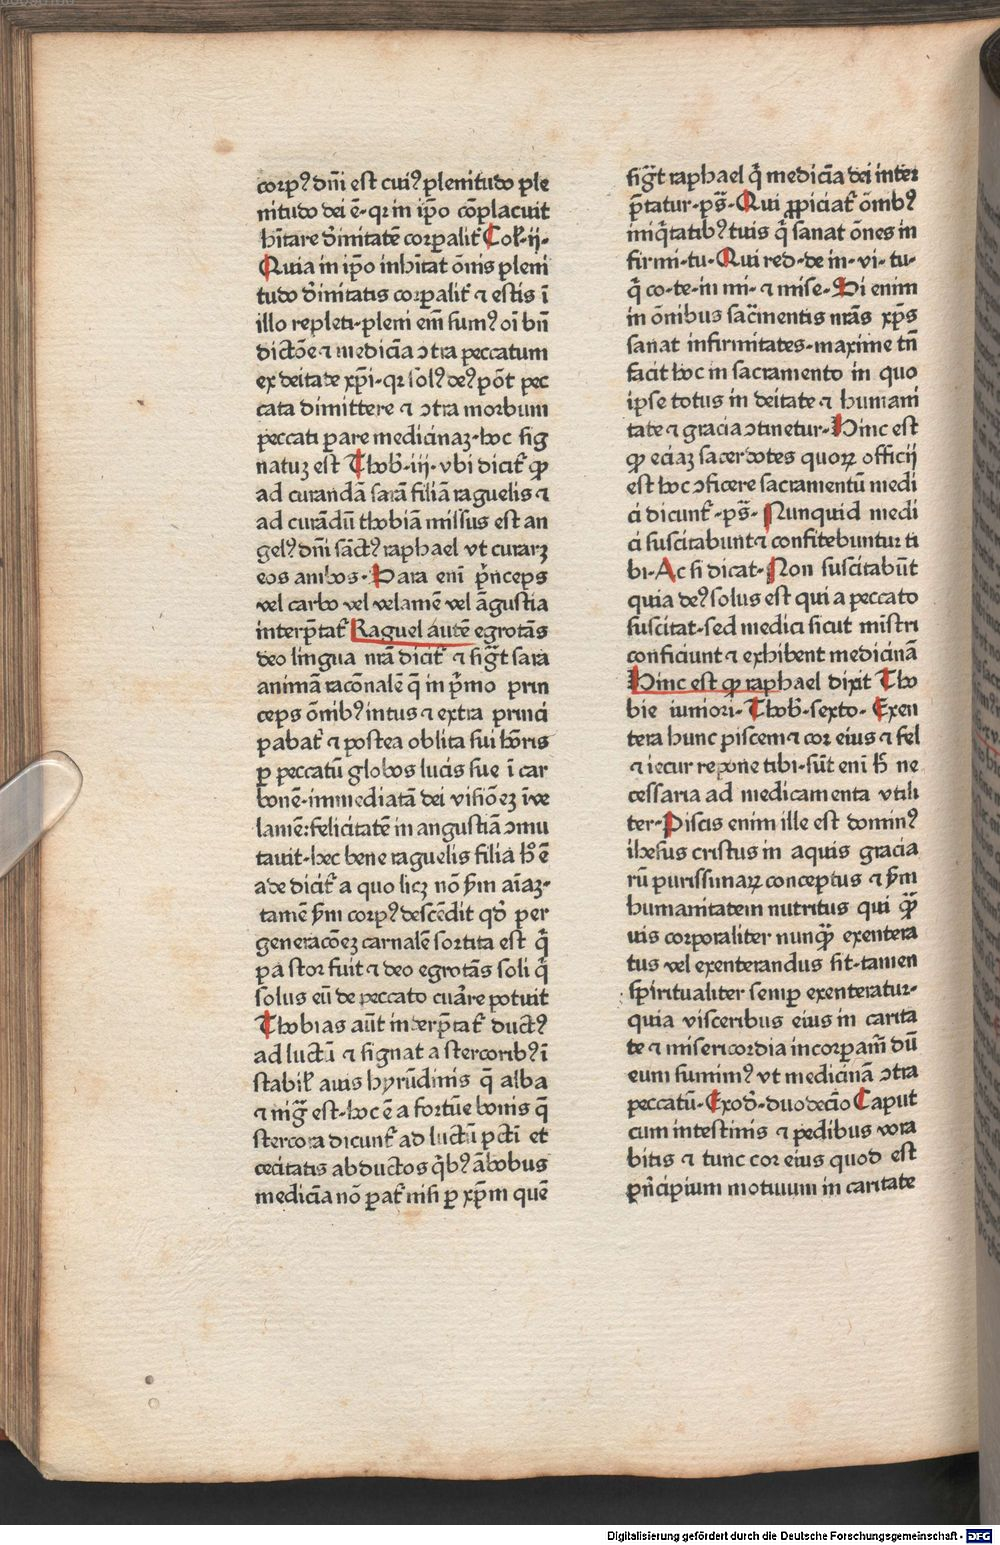 corpꝰ dn̄i est cuiꝰ plenitudo ple
nitudo dei ē·qꝛ in ip̄o cōplacuit
h̄itare d̓initatē corꝑalit̓ Col̓·ij·
Quia in ip̄o inhītat ōnis pleni
tudo d̓initatis corꝑalit̓ ⁊ estis ī
illo repleti·pleni em̄ sumꝰ oī bn̄
dictōe ⁊ medicīa ↄtra peccatum
ex deitate xp̄i·qꝛ solꝰ deꝰ pōt pec
cata dimittere ⁊ ↄtra morbum
peccati ꝑare medicinaꝫ·hoc sig
natuꝫ est Thob̓·iij·vbi dicit̓ ꝙ
ad curandā sarā filiā raguelis ⁊
ad curādū thobiā missus est an
gelꝰ dn̄i sāctꝰ raphael vt curarꝫ
eos ambos·Sara enī p̄nceps
vel carbo vel velamē vel āgustia
interp̄tat̓ Raguel autē egrotās
deo lingua nr̄ā dicit̓ ⁊ sigt̄ sara
animā racōnalē q̄ in p̄mo prin
ceps ōnibꝰ intus ⁊ extra princi
pabat̓ ⁊ postea oblita sui hōris
ꝑ peccatū globos lucis sue ī car
bonē·immediatā dei visiōeꝫ ī ve
lamē:felicitatē in angustiā ↄmu
tauit·hec bene raguelis filia h̓ ē
ade dicit̓ a quo licꝫ nō ẜm aīaꝫ·
tamē ẜm corpꝰ descēdit qd̓ per
generacōeꝫ carnalē sortita est q̄
pastor fuit ⁊ deo egrotās soli q̄
solus eū de peccato cuar̄e potuit
Thobias aūt interp̄tat̓ ductꝰ
ad luctū ⁊ signat a stercoribꝰ ī
stabil̓ auis hyrūdinis q̄ alba
⁊ nigr̄ est·hoc ē a fortūe bonis q̄
stercora dicunt̓ ad luctū pcti̅ et
cecitatis abductos q̄bꝰ ābobus
medicīa nō ꝑat̓ nisi ꝑ xp̄m quē
sigt̄ raphael q̄ medicīa dei inter
p̄tatur·ps̄·Qui ꝓpiciat̓ ōmbꝰ
iniq̄tatibꝰ tuis q̄ sanat ōnes in
firmi·tu·Qui red·de in·vi·tu·
q̄ co·te·in mi·⁊ mise·Si enim
in ōnibus sac̄mentis nrās xp̄s
sanat infirmitates·maxime tn̄
facit hoc in sacramento in quo
ipse totus in deitate ⁊ humani
tate ⁊ gracia ↄtinetur·Hinc est
ꝙ eciaꝫ sacerdotes quoꝝ officij
est hoc ↄficere sacramentū medi
ci dicunt̓·ps̄·Nunquid medi
ci suscitabunt ⁊ confitebuntur ti
bi·Ac si dicat·Non suscitabūt
quia deꝰ solus est qui a peccato
suscitat·sed medici sicut mīstri
conficiunt ⁊ exhibent medicinā
Hinc est ꝙ raphael dixit Tho
bie iuniori·Thob̓·sexto·Exen
tera hunc piscem ⁊ cor eius ⁊ fel
⁊ iecur repone tibi·sūt enī h̓ ne
cessaria ad medicamenta vtili
ter·Piscis enim ille est dominꝰ
ihesus cristus in aquis gracia
rū purissimaꝝ conceptus ⁊ ẜm
humanitatem nutritus qui ꝙ̄
uis corporaliter nunꝙ̄ exentera
tus vel exenterandus sit·tamen
spiritualiter semꝑ exenteratur·
quia visceribus eius in carita
te ⁊ misericordia incorꝑam̄ dū
eum sumimꝰ vt medicinā ↄtra
peccatū·Exod̓·duodecīo Caput
cum intestinis ⁊ pedibus vora
bitis ⁊ tunc cor eius quod est
pn̄cipium motiuum in caritate
Digitalisierung gefördert durch die Deutsche Forschungsgemeinschaft - DFG